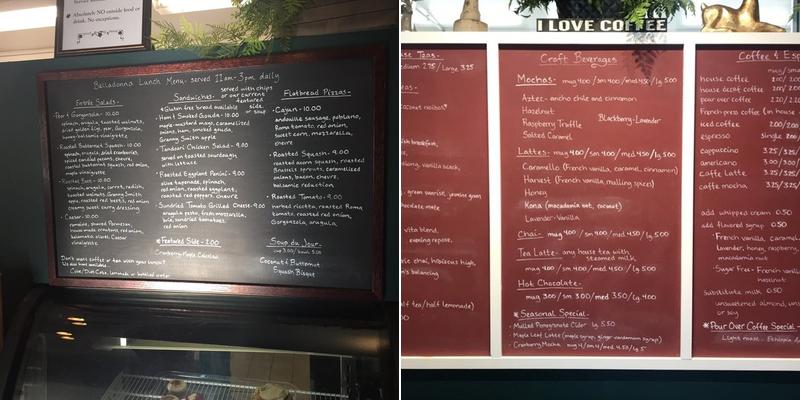 Service
★ Absolutely NO outside food or
drink. No exceptions.
Belladonna Lunch Menu- served 11am-3pm daily
Entrée Salads-
Pear & Gorgonzola- 10.00
spinach, arugula, toasted walnuts,
dried golden figs, pear, Gorgonzola,
honey-balsamic vinaigrette
Roasted Butternut Squash- 10.00
spinach, arugula, dried cranberries,
spiced candied pecans, chevre,
roasted butternut squash, red onion,
maple vinaigrette
10.00
spinach, arugula, carrot, radish,
toasted walnuts, Granny Smith
apple, roasted beets, red onion,
creamy sweet curry dressing
Caesar- 10.00
romaine, shaved Parmesan,
house made croutons, red onion,
kalamata olives, Caesar
vinaigrette
Don't want coffee or tea with your lunch?
We also have available
Coke/Diet Coke, lemonade or bottled water
Sandwiches- served with chips
or our current
featured
side
or
soup
★Gluten free bread available
Ham & Smoked Gouda- 10.00
maple mustard mayo, caramelized
onions, ham, smoked gouda,
Granny Smith apple
Tandoori Chicken Salad- 9.00
served on toasted sourdough
with lettuce
Roasted Eggplant Panini- 9.00
olive tapenade, spinach,
red onion, roasted eggplant,
roasted red peppers, chevre
Sundried Tomato Grilled Cheese- 9.00
arugula pesto, fresh mozzarella,
brie, sundried tomatoes
red onion
★Featured Side- 2.00
Cranberry Maple Coleslaw
Flatbread Pizzas-
Cajun- 10.00
andouille sausage, poblano,
Roma tomato, red onion,
sweet corn, mozzarella,
chevre
Roasted Squash- 9.00
roasted acorn squash, roasted
Brussels sprouts, caramelized
onions, bacon, chevre,
balsamic reduction
Roasted Tomato- 9.00
herbed ricotta, roasted Roma
tomato, roasted garlic,
red onion, arugula,
Gorgonzola
Soup du Jour-
cup 3.00/bowl 5.00
Coconut Butternut
Squash Bisque
I LOVE COFFEE
use Teas-
edium 2.75/Large 3.25
coconut rooibos*
sh breakfast,
dlong, vanilla beach,
, green sunrise, jasmine green
chocolate mate
vita blend,
evening repose,
ric chai, hibiscus high,
n's balancing
alf tea/half lemonade)
Craft Beverages
Mochas- mug 4.00/sm 4.00/med 4.50/lg 5.00
Aztec- ancho chile and cinnamon
Hazelnut
Raspberry Truffle
Blackberry-Lavender
Salted Caramel
Lattes- mug 4.00/sm 4.00/med 4.50/lg 5.00
Caramello (French vanilla, caramel, cinnamon)
Harvest (French vanilla, mulling spices)
Honey
Kona (macadamia nut, coconut)
Lavender-Vanilla
Chai- mug 4.00/sm 4.00/med 4.50/lg 5.00
Tea Latte- any house tea with
steamed milk
mug 4.00/sm 4.00/med 4.50/lg 5.00
Hot Chocolate-
mug 3.00/sm 3.00/med 3.50/lg 4.00
★Seasonal Special-
Mulled Pomegranate Cider lg 5.50
Maple Leaf Latte (maple syrup, ginger-cardamom syrup)
Cranberry Mocha mug 4/sm 4/med 4.50/lg 5
Coffee & Esp
mug/sm
house coffee
house decaf coffee
pour over coffee
French press coffee (in house
iced coffee
espresso single
cappuccino 3.25/3.25/
americano 3.00/3.00
caffe latte 3.25/3.25
caffe mocha 3.75/3.75
add whipped cream 0.50
add flavored syrup 0.50
French vanilla, caramel,
lavender, honey, raspberry,
macadamia nut
Sugar free- French vanilla,
hazelnut
substitute milk 0.50
unsweetened almond, uns
or soy
★Pour Over Coffee Special-
Light roast- Ethiopia